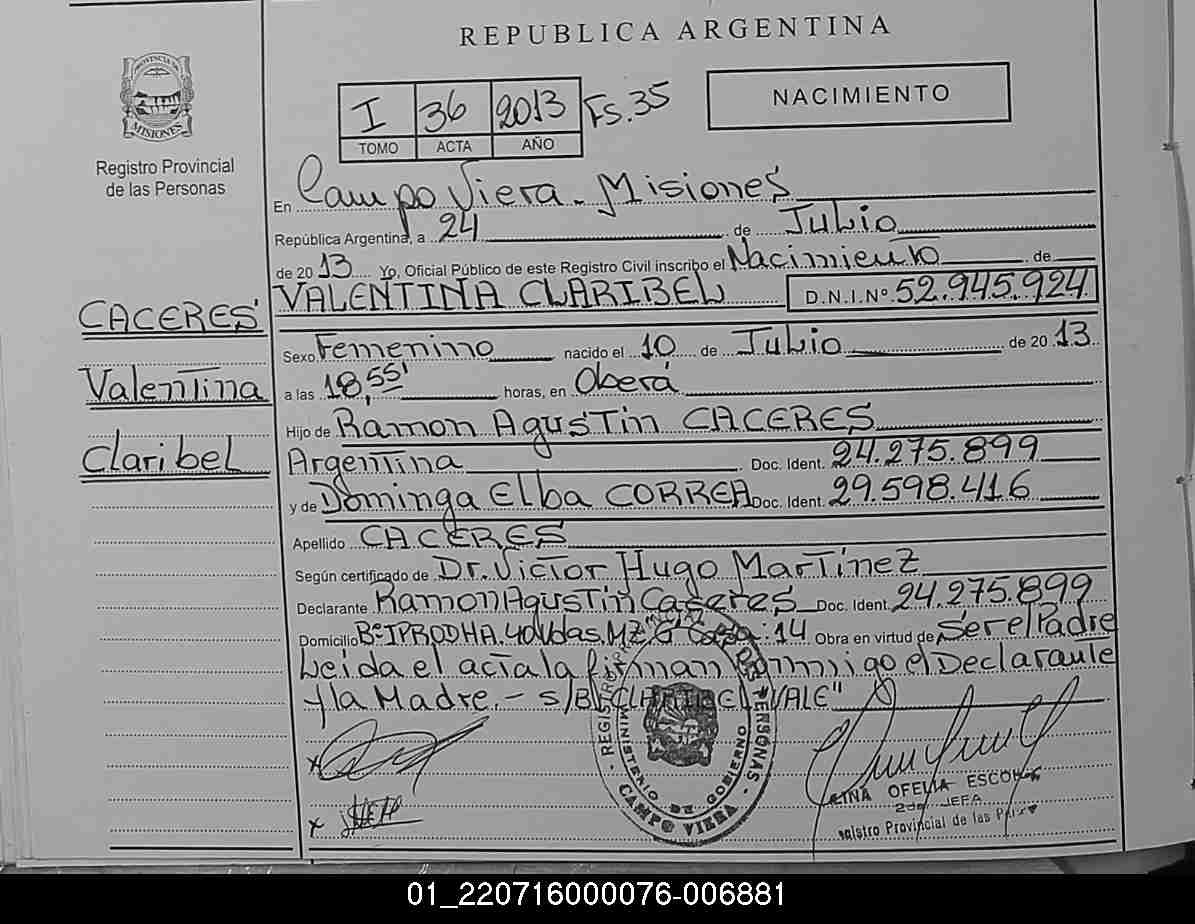 REPUBLICA ARGENTINA
PROVINCIA DE
MISIONES
Registro Provincial
de las Personas
I 36 2013 Fs.35
TOMO ACTA AÑO
NACIMIENTO
En Campo Viera - Misiones
República Argentina, a 24 de Julio
de 2013 Yo, Oficial Público de este Registro Civil inscribo el Nacimiento de
VALENTINA CLARIBEL D.N.I.Nº 52.945.924
CACERES
Valentina
Claribel
Sexo Femenino nacido el 10 de Julio de 2013
a las 18,55' horas, en Oberá
Hijo de Ramon Agustin CACERES
Argentina Doc. Ident. 24.275.899
y de Dominga Elba CORREA Doc. Ident. 29.598.416
Apellido CACERES
Según certificado de Dr. Victor Hugo Martinez
Declarante Ramon Agustin Caseres Doc. Ident. 24.275.899
Domicilio Bº IPRODHA. 40 Vdas. MZ "G" Casa: 14 Obra en virtud de Ser el Padre
Leida el acta la firman conmigo el Declarante
y la Madre. - S/B. CLARIBEL "VALE"
REGISTRO PROVINCIAL DE LAS PERSONAS
MINISTERIO DE GOBIERNO
CAMPO VIERA
OFELIA
2da JEFA
Provincial de las
01_220716000076-006881